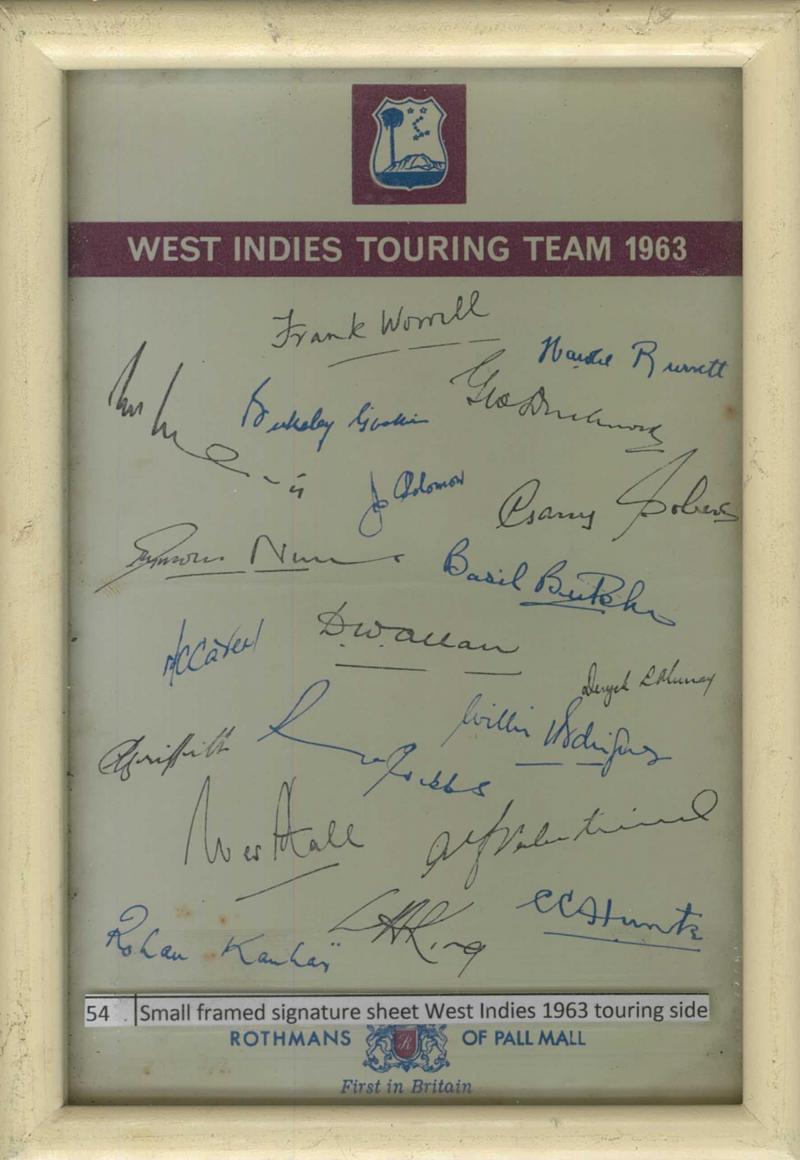 WEST INDIES TOURING TEAM 1963
Frank Worrell
Berkeley Gaskin
J Solomon
Seymour Nurse
Basil Butcher
M C Carew
D. W. Allan
Deryck L Murray
Willie Rodriguez
C Griffith
L Gibbs
Wes Hall
Alf Valentine
Rohan Kanhai
L A King
C C Hunte
54
Small framed signature sheet West Indies 1963 touring side
ROTHMANS OF PALL MALL
R
First in Britain